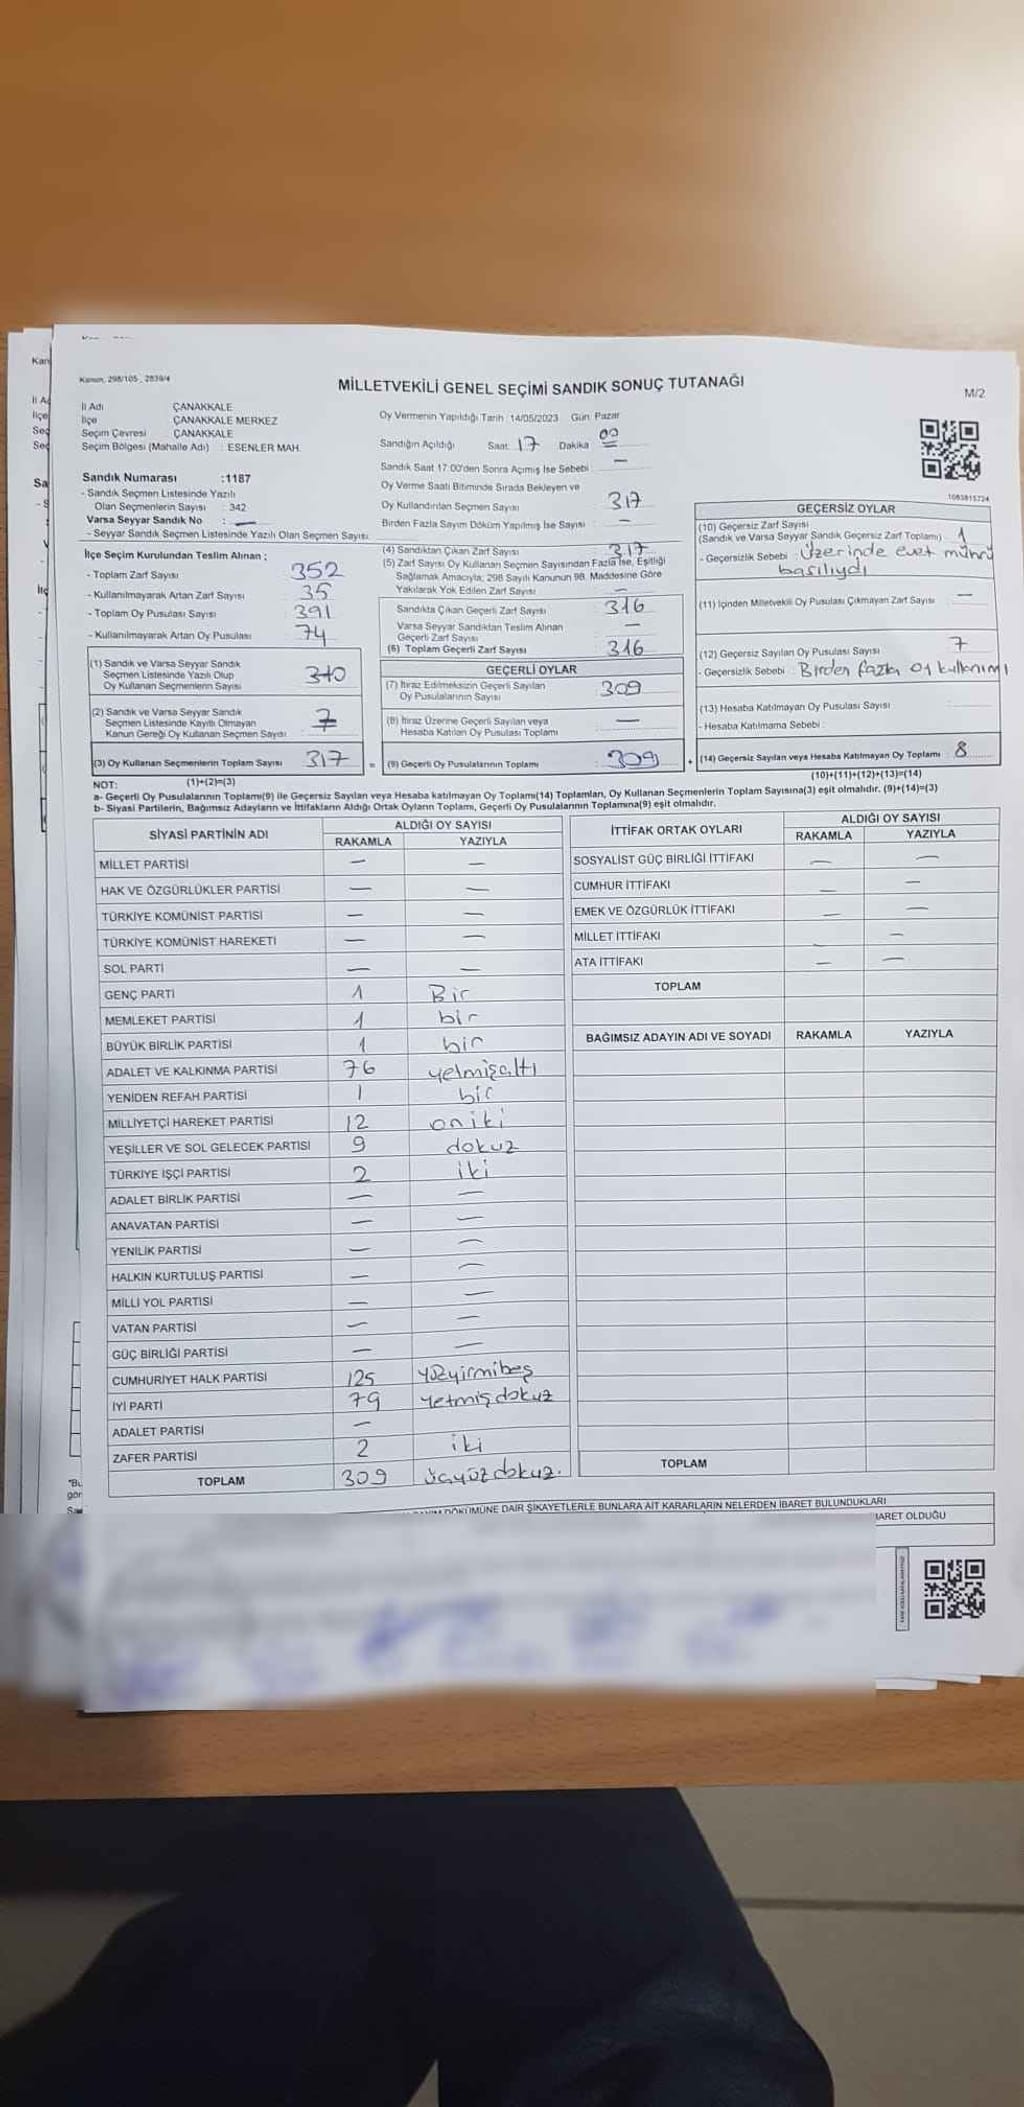 Kanun, 298/105 , 2839/4
MİLLETVEKİLİ GENEL SEÇİMİ SANDIK SONUÇ TUTANAĞI
M/2
İl Adı ÇANAKKALE
İlçe ÇANAKKALE MERKEZ
Seçim Çevresi ÇANAKKALE
Seçim Bölgesi (Mahalle Adı) : ESENLER MAH.
Oy Vermenin Yapıldığı Tarih : 14/05/2023 Gün: Pazar
Sandığın Açıldığı Saat: 17 Dakika 00
Sandık Saat 17:00'den Sonra Açılmış İse Sebebi —
Sandık Numarası :1187
- Sandık Seçmen Listesinde Yazılı
Olan Seçmenlerin Sayısı : 342
Varsa Seyyar Sandık No : —
- Seyyar Sandık Seçmen Listesinde Yazılı Olan Seçmen Sayısı:
Oy Verme Saati Bitiminde Sırada Bekleyen ve
Oy Kullandırılan Seçmen Sayısı 317
Birden Fazla Sayım Döküm Yapılmış İse Sayısı —
İlçe Seçim Kurulundan Teslim Alınan ;
- Toplam Zarf Sayısı 352
- Kullanılmayarak Artan Zarf Sayısı 35
- Toplam Oy Pusulası Sayısı 391
- Kullanılmayarak Artan Oy Pusulası 74
(1) Sandık ve Varsa Seyyar Sandık
Seçmen Listesinde Yazılı Olup
Oy Kullanan Seçmenlerin Sayısı 310
(2) Sandık ve Varsa Seyyar Sandık
Seçmen Listesinde Kayıtlı Olmayan
Kanun Gereği Oy Kullanan Seçmen Sayısı 7
(3) Oy Kullanan Seçmenlerin Toplam Sayısı 317
(1)+(2)=(3)
(4) Sandıktan Çıkan Zarf Sayısı 317
(5) Zarf Sayısı Oy Kullanan Seçmen Sayısından Fazla İse, Eşitliği
Sağlamak Amacıyla; 298 Sayılı Kanunun 98. Maddesine Göre
Yakılarak Yok Edilen Zarf Sayısı —
Sandıkta Çıkan Geçerli Zarf Sayısı 316
Varsa Seyyar Sandıktan Teslim Alınan
Geçerli Zarf Sayısı —
(6) Toplam Geçerli Zarf Sayısı 316
GEÇERLİ OYLAR
(7) İtiraz Edilmeksizin Geçerli Sayılan
Oy Pusulalarının Sayısı 309
(8) İtiraz Üzerine Geçerli Sayılan veya
Hesaba Katılan Oy Pusulası Toplamı —
= (9) Geçerli Oy Pusulalarının Toplamı 309 +
1083815724
GEÇERSİZ OYLAR
(10) Geçersiz Zarf Sayısı
(Sandık ve Varsa Seyyar Sandık Geçersiz Zarf Toplamı) 1
- Geçersizlik Sebebi : Üzerinde evet mührü
basılıydı
(11) İçinden Milletvekili Oy Pusulası Çıkmayan Zarf Sayısı —
(12) Geçersiz Sayılan Oy Pusulası Sayısı 7
- Geçersizlik Sebebi : Birden fazla oy kullanımı
(13) Hesaba Katılmayan Oy Pusulası Sayısı
- Hesaba Katılmama Sebebi :
(14) Geçersiz Sayılan veya Hesaba Katılmayan Oy Toplamı 8
(10)+(11)+(12)+(13)=(14)
NOT:
a- Geçerli Oy Pusulalarının Toplamı(9) ile Geçersiz Sayılan veya Hesaba katılmayan Oy Toplamı(14) Toplamları, Oy Kullanan Seçmenlerin Toplam Sayısına(3) eşit olmalıdır. (9)+(14)=(3)
b- Siyasi Partilerin, Bağımsız Adayların ve İttifakların Aldığı Ortak Oyların Toplamı, Geçerli Oy Pusulalarının Toplamına(9) eşit olmalıdır.
SİYASİ PARTİNİN ADI ALDIĞI OY SAYISI
RAKAMLA YAZIYLA
MİLLET PARTİSİ — —
HAK VE ÖZGÜRLÜKLER PARTİSİ — —
TÜRKİYE KOMÜNİST PARTİSİ — —
TÜRKİYE KOMÜNİST HAREKETİ — —
SOL PARTİ — —
GENÇ PARTİ 1 Bir
MEMLEKET PARTİSİ 1 bir
BÜYÜK BİRLİK PARTİSİ 1 bir
ADALET VE KALKINMA PARTİSİ 76 yetmişaltı
YENİDEN REFAH PARTİSİ 1 bir
MİLLİYETÇİ HAREKET PARTİSİ 12 oniki
YEŞİLLER VE SOL GELECEK PARTİSİ 9 dokuz
TÜRKİYE İŞÇİ PARTİSİ 2 iki
ADALET BİRLİK PARTİSİ — —
ANAVATAN PARTİSİ — —
YENİLİK PARTİSİ — —
HALKIN KURTULUŞ PARTİSİ — —
MİLLİ YOL PARTİSİ — —
VATAN PARTİSİ — —
GÜÇ BİRLİĞİ PARTİSİ — —
CUMHURİYET HALK PARTİSİ 125 yüzyirmibeş
İYİ PARTİ 79 yetmişdokuz
ADALET PARTİSİ —
ZAFER PARTİSİ 2 iki
TOPLAM 309 üçyüzdokuz.
İTTİFAK ORTAK OYLARI ALDIĞI OY SAYISI
RAKAMLA YAZIYLA
SOSYALİST GÜÇ BİRLİĞİ İTTİFAKI — —
CUMHUR İTTİFAKI — —
EMEK VE ÖZGÜRLÜK İTTİFAKI — —
MİLLET İTTİFAKI — —
ATA İTTİFAKI — —
TOPLAM
BAĞIMSIZ ADAYIN ADI VE SOYADI RAKAMLA YAZIYLA
TOPLAM
DÖKÜMÜNE DAİR ŞİKAYETLERLE BUNLARA AİT KARARLARIN NELERDEN İBARET BULUNDUKLARI
OLDUĞU